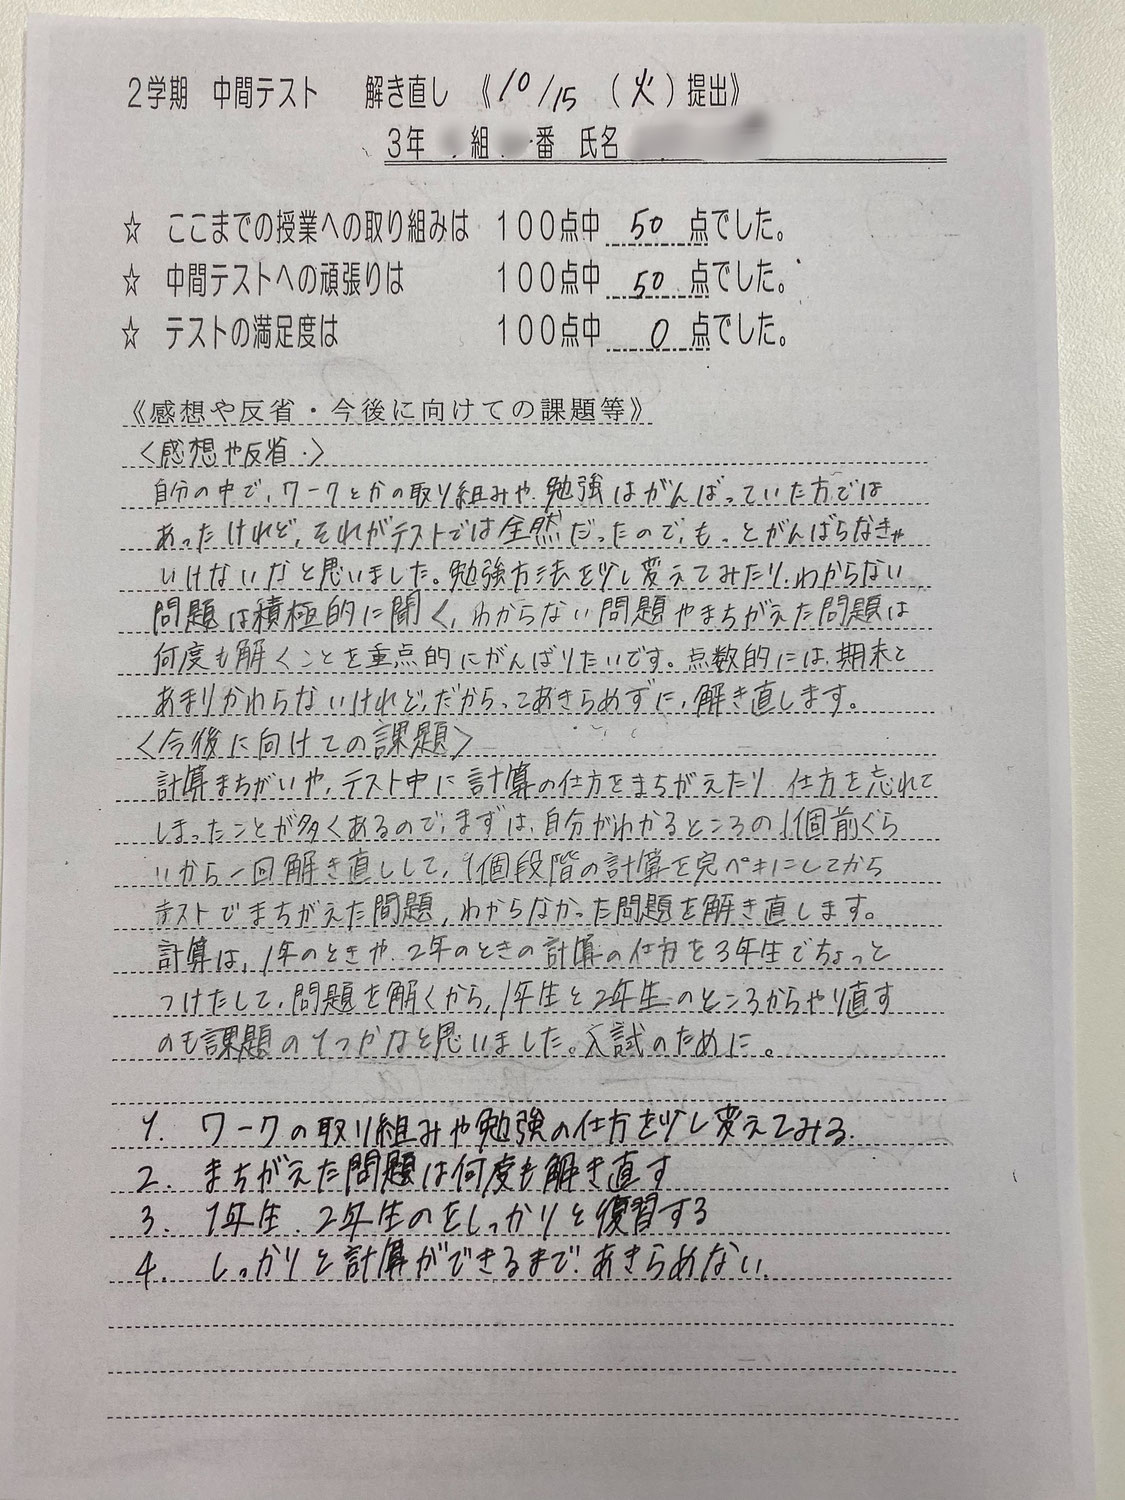 2学期 中間テスト 解き直し 《10/15(火)提出》
3年 組 番 氏名
☆ ここまでの授業への取り組みは 100点中 50 点でした。
☆ 中間テストへの頑張りは 100点中 50 点でした。
☆ テストの満足度は 100点中 0 点でした。
《感想や反省・今後に向けての課題等》
<感想や反省・>
自分の中で、ワークとかの取り組みや、勉強はがんばっていた方では
あったけれど、それがテストでは全然だったので、もっとがんばらなきゃ
いけないなと思いました。勉強方法を少し変えてみたり、わからない
問題は積極的に聞く、わからない問題やまちがえた問題は
何度も解くことを重点的にがんばりたいです。点数的には、期末と
あまりかわらないけれど、だからってあきらめずに、解き直します。
<今後に向けての課題>
計算まちがいや、テスト中に計算の仕方をまちがえたり、仕方を忘れて
しまったことが多くあるので、まずは、自分がわかるところの1個前ぐら
いから一回解き直しして、1個段階の計算を完ペキにしてから
テストでまちがえた問題、わからなかった問題を解き直します。
計算は、1年のときや、2年のときの計算の仕方を3年生でちょっと
つけたして、問題を解くから、1年生と2年生のところからやり直す
のも課題の1つかなと思いました。入試のために。
1. ワークの取り組みや勉強の仕方を少し変えてみる.
2. まちがえた問題は何度も解き直す
3. 1年生、2年生のをしっかりと復習する
4. しっかりと計算ができるまで、あきらめない.